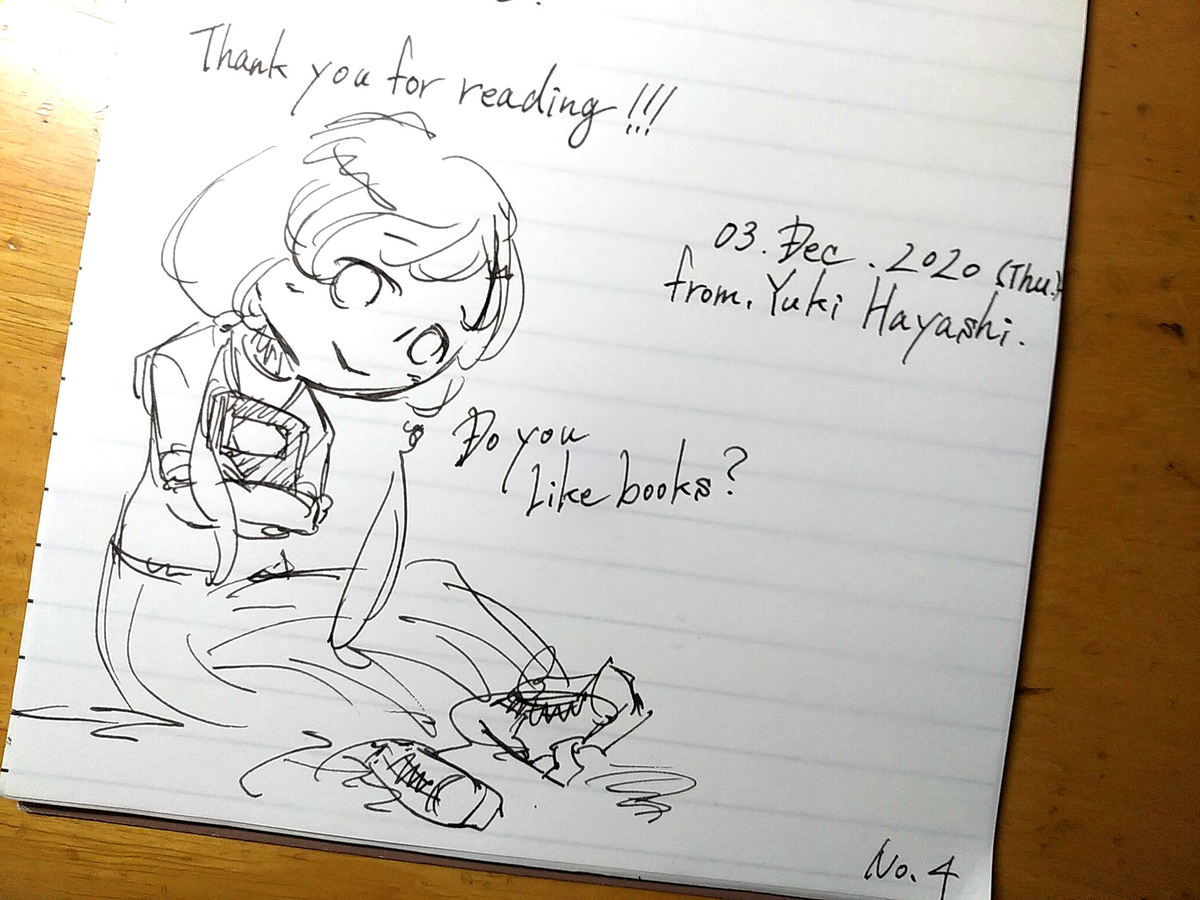 Thank you for reading!!!
03. Dec. 2020 (Thu.)
from. Yuki Hayashi.
Do you
like books?
No. 4